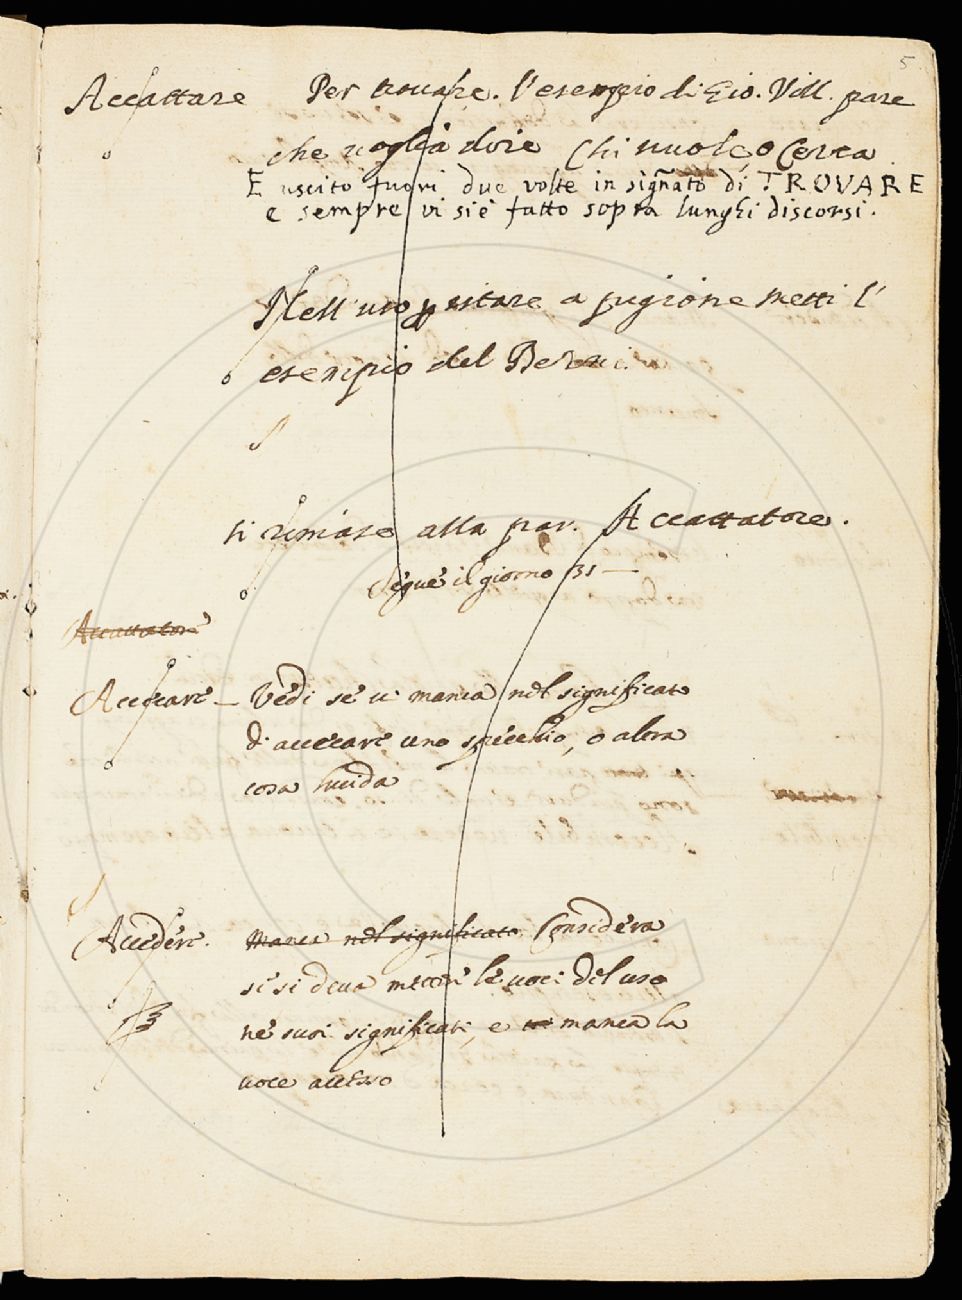 5
Accattare Per trovare. l'esempio di Gio. Vill. pare
che voglia dire Chi vuole, o Cerca
E uscito fuori due volte in signãto di TROVARE
e sempre vi si è fatto sopra lunghi discorsi.
Nell'uso pitare a pigione metti l'
esempio del Berni.
si rimase alla par. Accattatore.
Segue il giorno 31 —
Accattatore
Accecare — Vedi se vi manca nel significato
di accecare uno specchio, o altra
cosa lucida
Accedere. Manca nel significato Considera
se si deva metter le voci del uso
ne suoi significati, e manca la
voce accesso